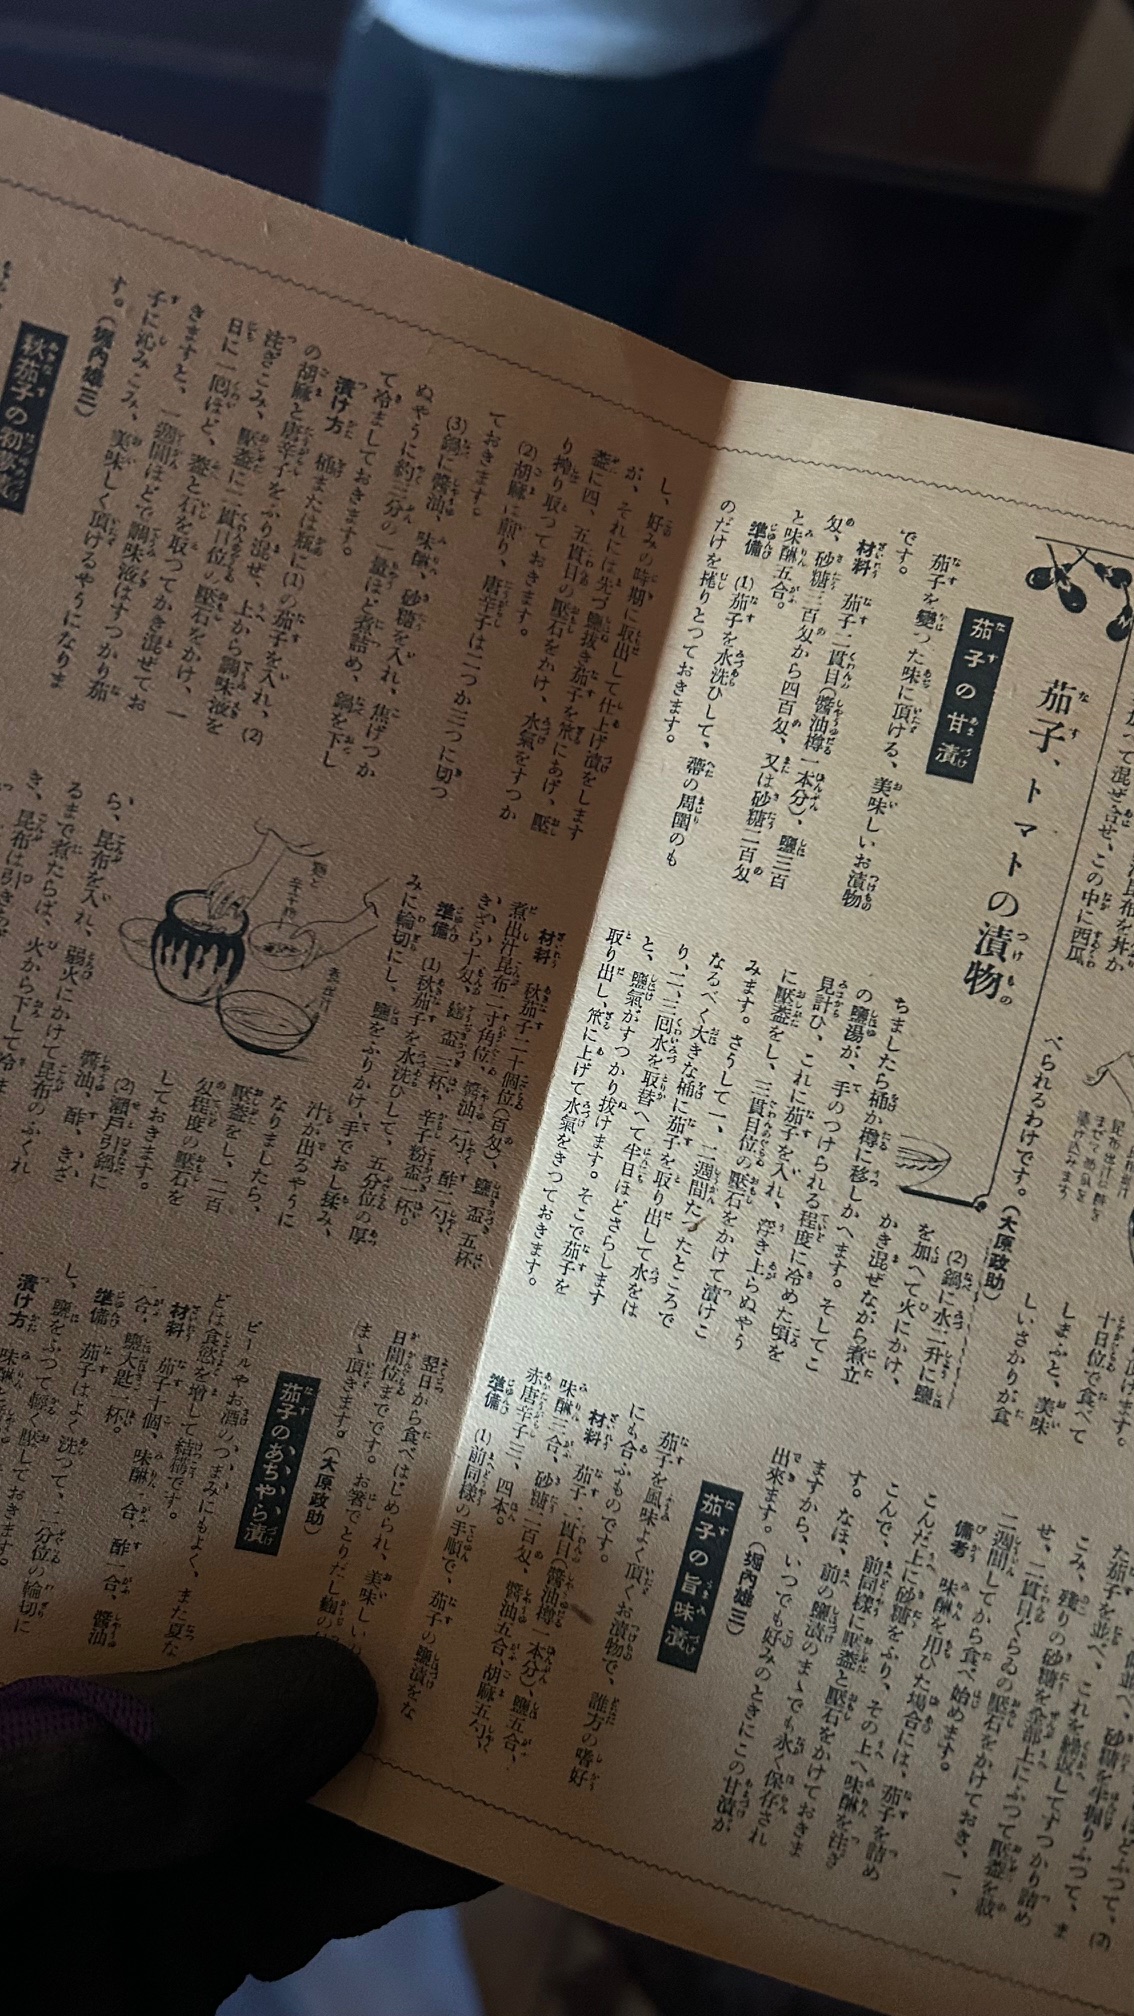 混ぜ合せ、この中に西瓜
十日位で食べて
しまふと、美味
しいさかりが食
べられるわけです。(大原政助)
茄子、トマトの漬物
茄子の甘漬
茄子を變つた味に頂ける、美味しいお漬物
です。
材料 茄子二貫目(醬油樽一本分)、鹽三百
匁、砂糖三百匁から四百匁、又は砂糖二百匁
と味醂五合。
準備 (1)茄子を水洗ひして、蔕の周圍のも
のだけを捥りとつておきます。
(2)鍋に水二升に鹽
を加へて火にかけ、
かき混ぜながら煮立
ちましたら桶か樽に移しかへます。そしてこ
の鹽湯が、手のつけられる程度に冷めた頃を
見計ひ、これに茄子を入れ、浮き上らぬやう
に壓蓋をし、三貫目位の壓石をかけて漬けこ
みます。さうして一、二週間たつたところで
なるべく大きな桶に茄子を取り出して水をは
り、二、三囘水を取替へて半日ほどさらします
と、鹽氣がすつかり拔けます。そこで茄子を
取り出し、笊に上げて水氣をきつておきます。
た茄子を並べ、これを繰返してすつかり詰め
こみ、殘りの砂糖を全部上にふつて壓蓋を載
せ、二貫目ぐらゐの壓石をかけておき、一、
二週間してから食べ始めます。
備考 味醂を用ひた場合には、茄子を詰め
こんだ上に砂糖をふり、その上へ味醂を注ぎ
こんで、前同樣に壓蓋と壓石をかけておきま
す。なほ、前の鹽漬のまゝでも永く保存され
ますから、いつでも好みのときにこの甘漬が
出來ます。(堀内雄三)
茄子の旨味漬
茄子を風味よく頂くお漬物で、誰方の嗜好
にも合ふものです。
材料 茄子二貫目(醬油樽一本分)、鹽五合、
味醂三合、砂糖二百匁、醬油五合、胡麻五勺、
赤唐辛子三、四本。
準備 (1)前同樣の手順で、茄子の鹽漬をな
し、好みの時期に取出して仕上げ漬をします
が、それには先づ鹽拔き茄子を笊にあげ、壓
蓋に四、五貫目の壓石をかけ、水氣をすつか
り搾り取つておきます。
(2)胡麻は煎り、唐辛子は二つか三つに切つ
ておきます。
(3)鍋に醬油、味醂、砂糖を入れ、焦げつか
ぬやうに約三分の一量ほど煮詰め、鍋を下し
て冷ましておきます。
漬け方 桶または甁に(1)の茄子を入れ、(2)
の胡麻と唐辛子をふり混ぜ、上から調味液を
注ぎこみ、壓蓋に二貫目位の壓石をかけ、一
日に一囘ほど、蓋と石を取つてかき混ぜてお
きますと、一週間ほどで調味液はすつかり茄
子に沁みこみ、美味しく頂けるやうになりま
す。(堀内雄三)
秋茄子の
材料 秋茄子二十個位(百匁)、鹽盃五杯、
煮出汁昆布二寸角位、醬油二勺、酢二勺、
きざら十匁、麹盃三杯、辛子粉盃一杯。
準備 (1)秋茄子を水洗ひして、五分位の厚
みに輪切にし、鹽をふりかけ、手でおし揉み、
汁が出るやうに
なりましたら、
壓蓋をし、二百
匁程度の壓石を
しておきます。
(2)瀬戸引鍋に
醬油、酢、きざ
ら、昆布を入れ、弱火にかけて昆布のふくれ
るまで煮たらば、火から下して冷ま
き、昆布は引き
麹と
辛子粉
あはせ汁
翌日から食べはじめられ、美味しい
日間位までです。お箸でとりだし麹の
まゝ頂きます。(大原政助)
茄子のあちやら漬
ビールやお酒のつまみにもよく、また夏な
どは食慾を增して結構です。
材料 茄子十個、味醂一合、酢一合、醬油
一合、鹽大匙一杯。
準備 茄子はよく洗つて、二分位の輪切に
し、鹽をふつて輕く壓しておきます。
漬け方